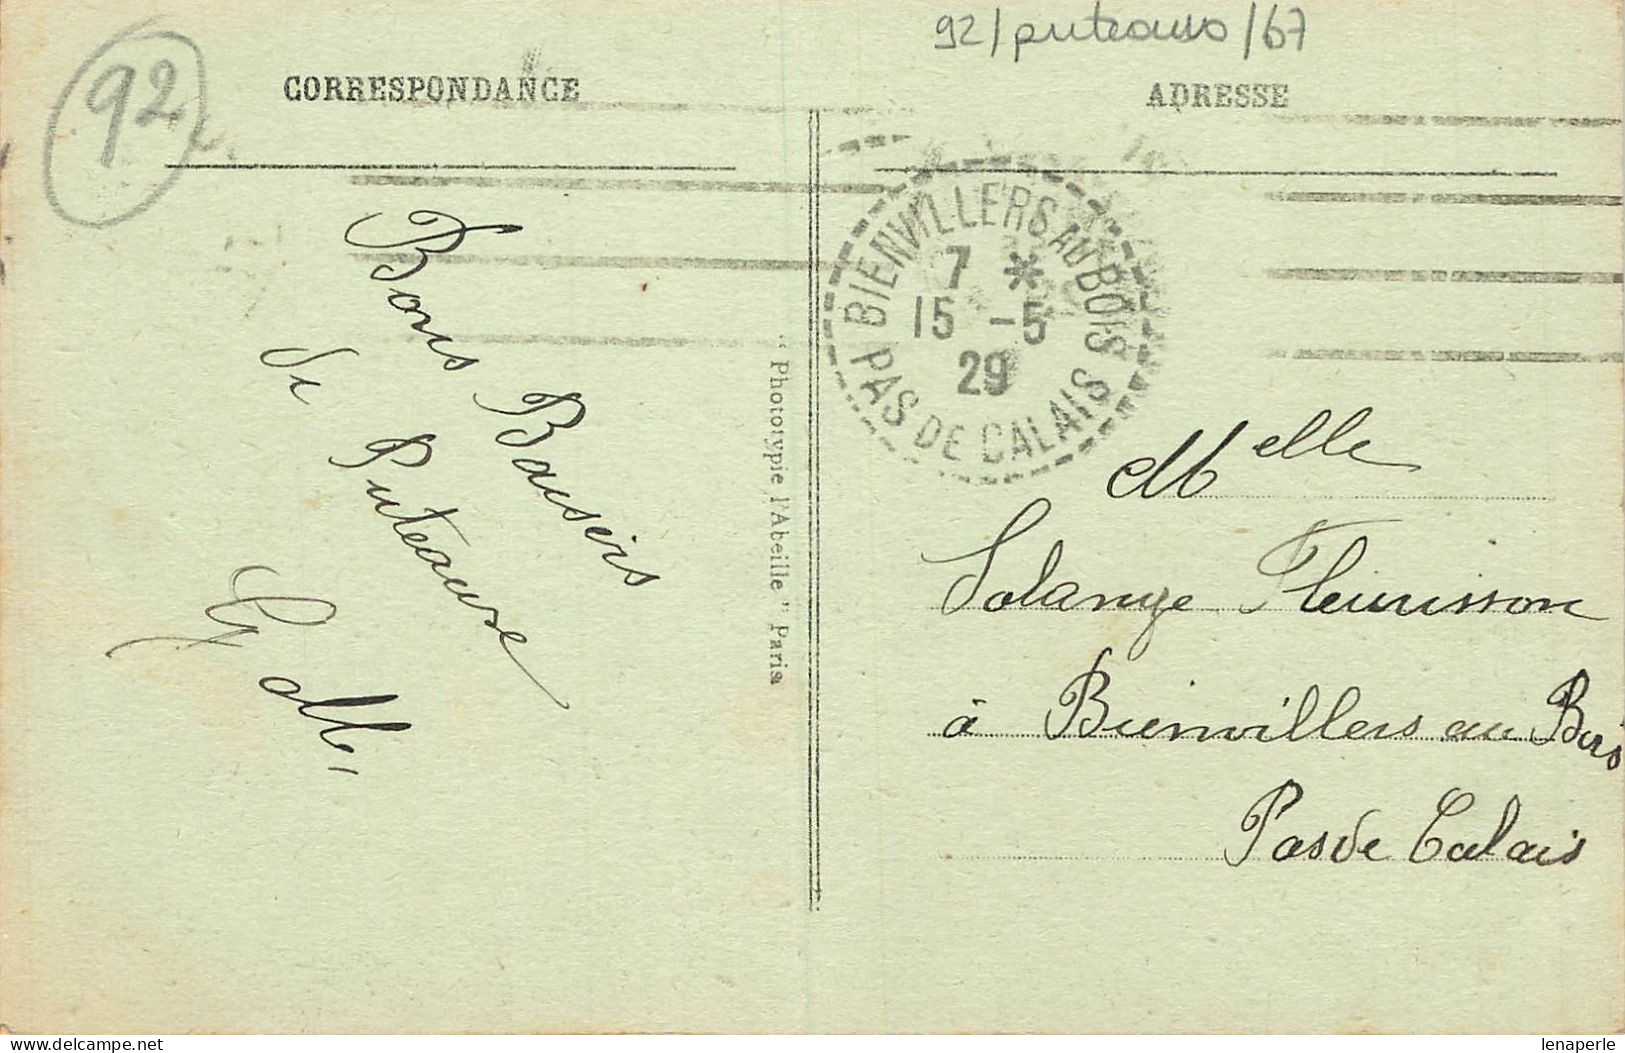 92/puteaux/67
92
CORRESPONDANCE
ADRESSE
BIENVILLERS AU BOIS
7 *
15 -5
29
PAS DE CALAIS
Bons Baisers
de Puteaux
G M
" Photot​ypie l'Abeille " Paris
Melle
Solange Fleurisson
à Bienvillers au Bois
Pas de Calais
Delcampe.net
lenaperle